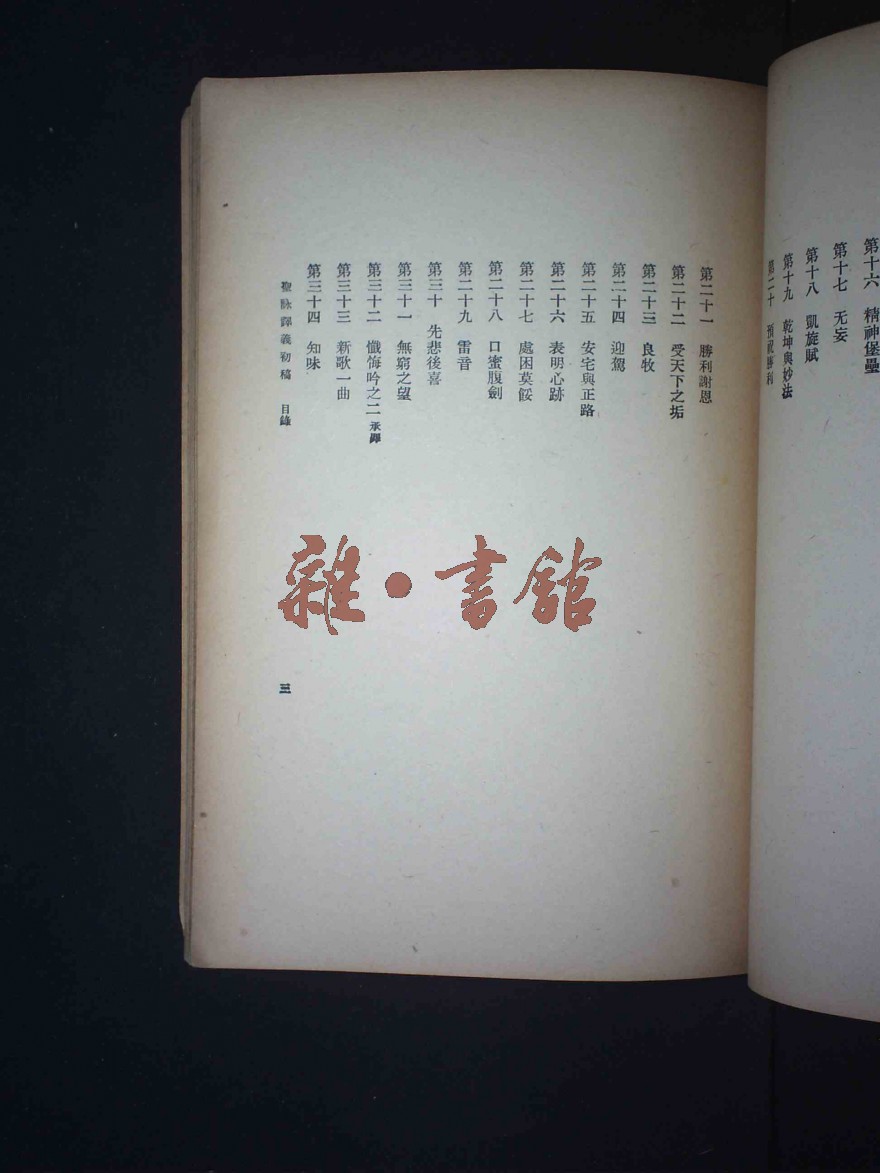 第十六 精神堡壘
第十七 无妄
第十八 凱旋賦
第十九 乾坤與妙法
第二十 預祝勝利
第二十一 勝利謝恩
第二十二 受天下之垢
第二十三 良牧
第二十四 迎駕
第二十五 安宅與正路
第二十六 表明心跡
第二十七 處困莫餒
第二十八 口蜜腹劍
第二十九 雷音
第三十 先悲後喜
第三十一 無窮之望
第三十二 懺悔吟之二 承鐸
第三十三 新歌一曲
第三十四 知味
聖詠譯義初稿 目錄
三
雜·書館